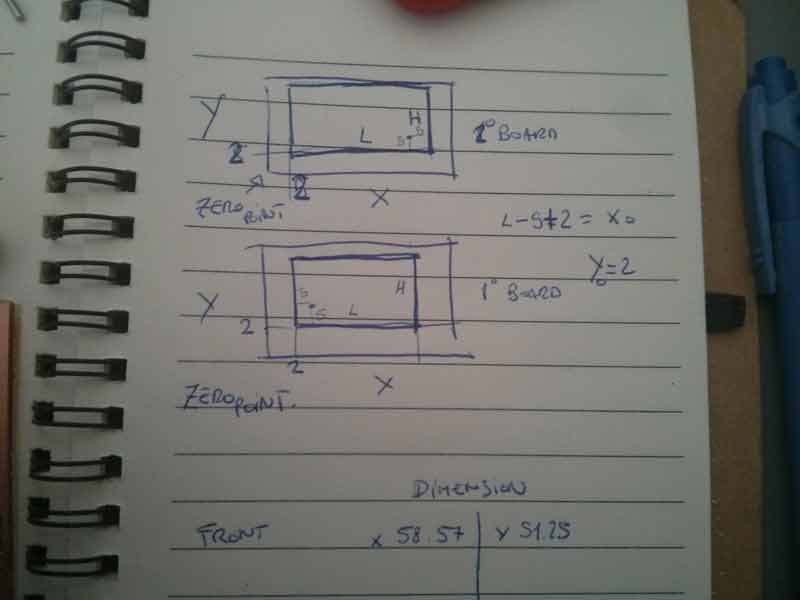 Y
H
L
S S
2
2° BOARD
2
X
ZERO POINT
L-S+2 = X0
Y0=2
S
H
1° BOARD
Y
S
L
2
2
X
ZERO POINT.
DIMENSION
FRONT X 58.57 Y 51.25